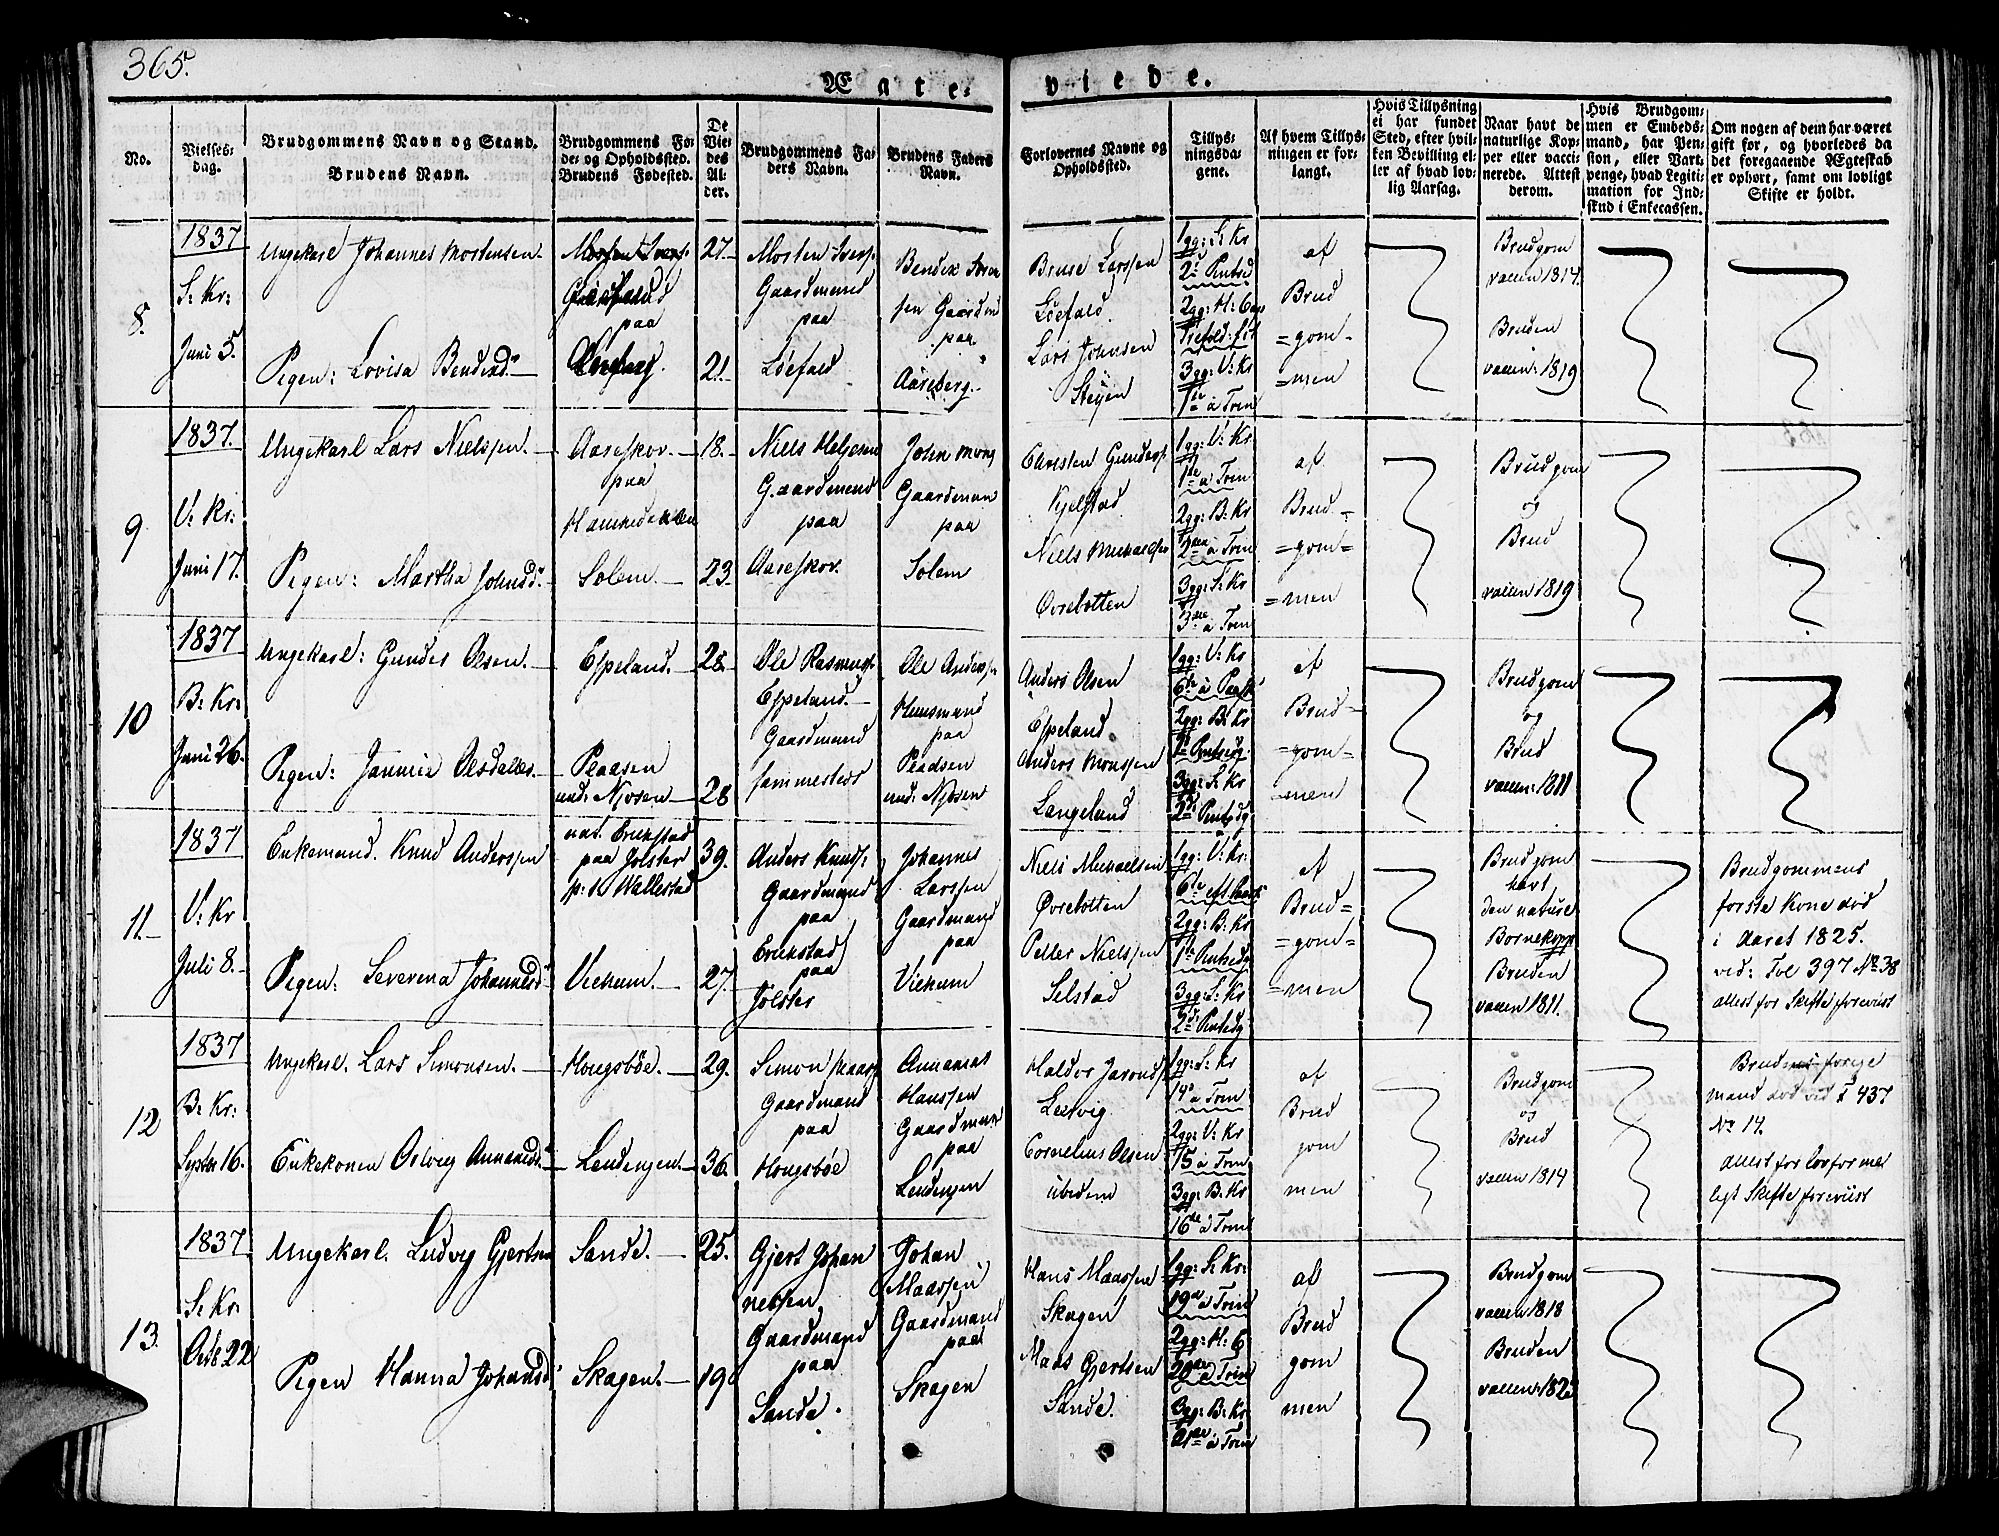 365.
Ægte=
viede.
No.
Vielses=
dag.
Brudgommens Navn og Stand.
Brudens Navn.
Brudgommens Fø=
de= og Opholdssted.
Brudens Fødested.
De
Vie=
des
Al=
der.
Brudgommens Fa=
ders Navn.
Brudens Faders
Navn.
Forlovernes Navne og
Opholdssted.
Tillys=
ningsda=
gene.
Af hvem Tillys=
ningen er for=
langt.
Hvis Tillysning
ei har fundet
Sted, efter hvil=
ken Bevilling el=
ler af hvad lov=
lig Aarsag.
Naar havt de
naturlige Kop=
per eller vacci=
nerede. Attest
derom.
Hvis Brudgom=
men er Embeds=
mand, har Pen=
sion, eller Vart=
penge, hvad Legiti=
mation for Ind=
skud i Enkecassen.
Om nogen af dem har været
gift før, og hvorledes da
det foregaaende Ægteskab
er ophørt, samt om lovligt
Skifte er holdt.
8.
1837
S: Kr:
Juni 5.
Ungekarl Johannes Mortensen.
Pigen: Lovisa Bendixd:
paa
27.
21.
Morten Ivers:
Gaardmand
paa
Löefald
Bendix
sen Gaardmd
paa
Aareberg.
Bruse Larssen
Löefald.
Lars Johnsen
Steyen
1gg: S: Kr
2d Pintsd
2gg: H:
3gg: V: Kr
1te à Trin
af
Brud
=gom=
=men
Brudgom
vaccn 1814.
Bruden
vaccn: 1819
9.
1837.
V: Kr:
Juni 17.
Ungekarl Lars Nielssen.
Pigen: Martha Johnsd:
Aareskov.
paa
Solem.
18.
23.
Niels Helgesen
Gaardmand
paa
Aareskov.
John Mons
Gaardman
paa
Solem
Christen Gunders:
Kjelstad
Niels Michaelsen
Övrebotten
1gg: V: Kr
1te à Trin
2gg: B: Kr
2den à Trin
3gg: S: Kr
3die à Trin
af
Brud=
=gom=
=men
Brudgom
og
Brud
vaccn 1819
10
1837
B: Kr:
Juni 26.
Ungekarl: Gunder Olsen.
Pigen:
Espeland.
und: Njosen
28.
28
Ole Rasmus:
Espeland.
Gaardmand
sammesteds
Ole Anders:
Huusmand
paa
und: Njosen
Anders Olsen
Espeland.
Anders Monssen
Langeland
1gg: V: Kr
6te à Paask
2gg: B: Kr
1te Pintsdg.
3gg: S: Kr
2d: Pintsdg
af
Brud=
=gom=
=men
Brudgom
og
Brud
vaccn: 1811
11.
1837
V: Kr
Juli 8.
Enkemand. Knud Anderssen
Pigen: Severina Johannesd:
nat. Erikstad
paa Jolster
p: t Wallestad
Viehum.
39.
27.
Anders Knuds:
Gaardmand
paa
Erikstad
paa
Jölster
Johannes
Larssen
Gaardmand
paa
Viehum
Niels Michaelsen
Övrebotten
Petter Nielssen
Selstad
1gg: V: Kr:
6te
2gg: B: Kr
1te Pintsdg
3gg: S: Kr
2d: Pintsdg
af
Brud=
=gom=
=men
Brudgom
havt
den nature
Bornekopp
Bruden
vaccn 1811.
Brudgommens
forste Kone död
i Aaret 1825.
vid: Fol 397 No 38
attest for Skifte foreviist
12
1837
B: Kr:
Septbr 16.
Ungekarl. Lars Simonsen.
Enkekonen Oslvig Annaniasd:
Hougsböe.
Lendingen.
29.
36.
Simon
Gaardmand
paa
Hougsböe
Annanias
Hanssen
Gaardman
paa
Lendingen
Haldor
Lervig
Cornelius Olsen
ibidem
1gg: S: Kr
14de à Trin
2gg: V: Kr
15 à Trin
3gg: B: Kr
16de à Trin
af
Brud
gom
men
Brudgom
og
Brud
vaccn 1814
Brudens forige
mand död vid F 437
No 14.
attest for lovformel
ligt Skifte foreviist
13.
1837
S: Kr
Octb 22
Ungekarl. Ludvig Gjertsen
Pigen Hanna Johansd:
Sande.
Skagen.
25.
19.
Gjert Johan
nessen
Gaardmand
paa
Sande.
Johan
Maassen
Gaardmand
paa
Skagen
Hans Maassen
Skagen
Maas Gjertsen
Sande.
1gg: S: Kr:
19de à Trin
2gg: H: G
20de à Trin
3gg: B: Kr
21de à Trin
af
Brud
gom
men
Brudgom
vaccn 1818
Bruden